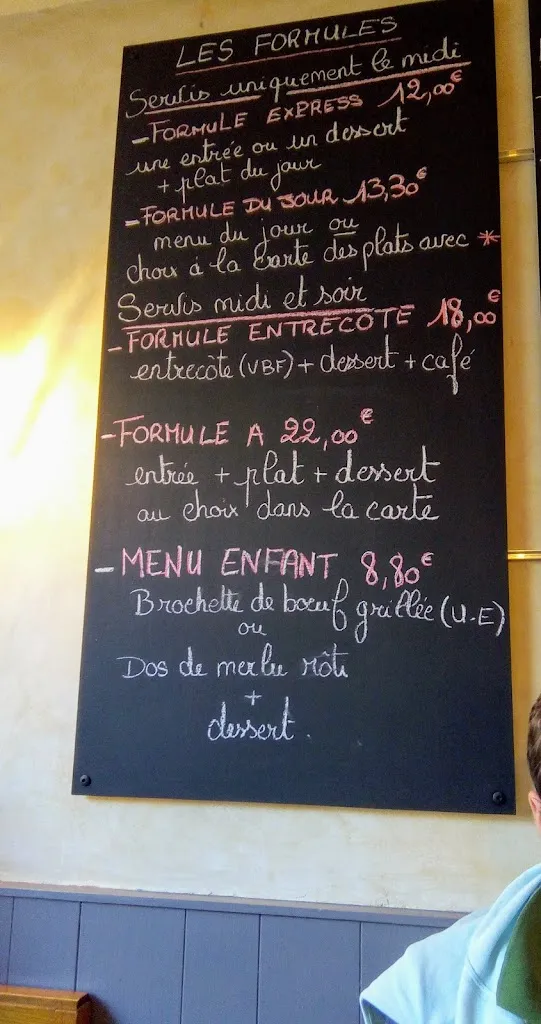 LES FORMULES
Servis uniquement le midi
- FORMULE EXPRESS 12,00€
une entrée ou un dessert
+ plat du jour
- FORMULE DU JOUR 13,30€
menu du jour ou
choix à la carte des plats avec *
Servis midi et soir
- FORMULE ENTRECÔTE 18,00€
entrecôte (VBF) + dessert + café
- FORMULE A 22,00€
entrée + plat + dessert
au choix dans la carte
- MENU ENFANT 8,80€
Brochette de bœuf grillée (U.E)
ou
Dos de merlu rôti
+
dessert.